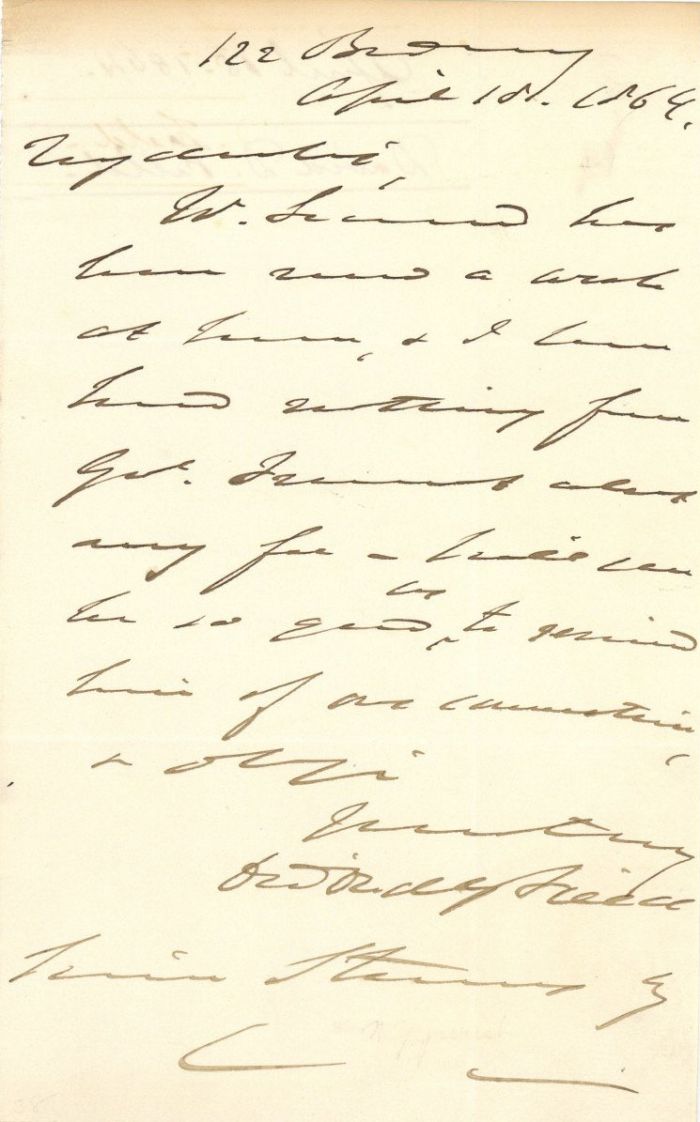 122 Bdway
April 18. 1864.
My dear Sir,
W. has
been a week
at home, & I have
heard nothing from
Gen'l. Fremont about
my fee — will you
be so good as to remind
him of our conversation,
& oblige
Yours truly
David Dudley Field
Esq